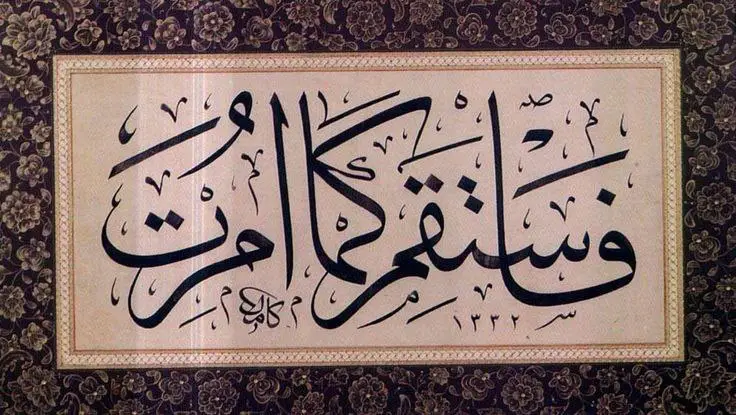 فَاسْتَقِمْ كَمَا اُمِرْتَ
كامل ١٣٣٢